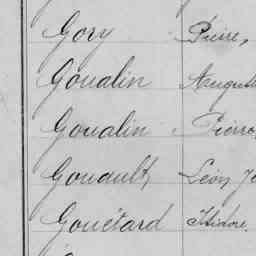 Gory Pierre,
Goualin
Goualin Pierre
Gouault, Léon
Gouétard Isidore.